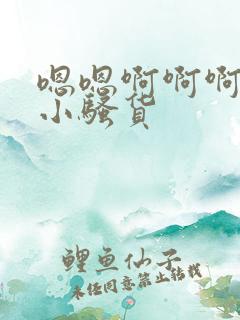 嗯嗯啊啊啊
小骚货
鲤鱼仙子
未经同意禁止转载